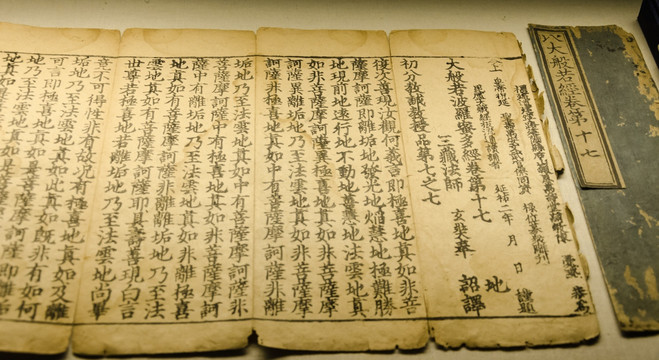 大般若經卷第十七
延祐二年 月 日 謹題
大般若波羅蜜多經卷第十七
三藏法師 玄奘奉 詔譯
地
初分教誡教授品第七之七
復次善現汝觀何義言即極喜地真如非菩
薩摩訶薩即離垢地發光地焰慧地極難勝
地現前地遠行地不動地善慧地法雲地真
如非菩薩摩訶薩異極喜地真如非菩薩摩
訶薩異離垢地乃至法雲地真如非菩薩摩
訶薩非極喜地真如中有菩薩摩訶薩非離
垢地乃至法雲地真如中有菩薩摩訶薩非
菩薩摩訶薩中有極喜地真如非菩薩摩訶
薩中有離垢地乃至法雲地真如非離極喜
地真如有菩薩摩訶薩非離離垢地乃至法
雲地真如有菩薩摩訶薩耶具壽善現白言
世尊若極喜地若離垢地乃至法雲地尚畢
竟不可得性非有故況有極喜地真如及離
垢地乃至法雲地真如此真如既非有如何
可言即極喜地真如是菩薩摩訶薩即離垢